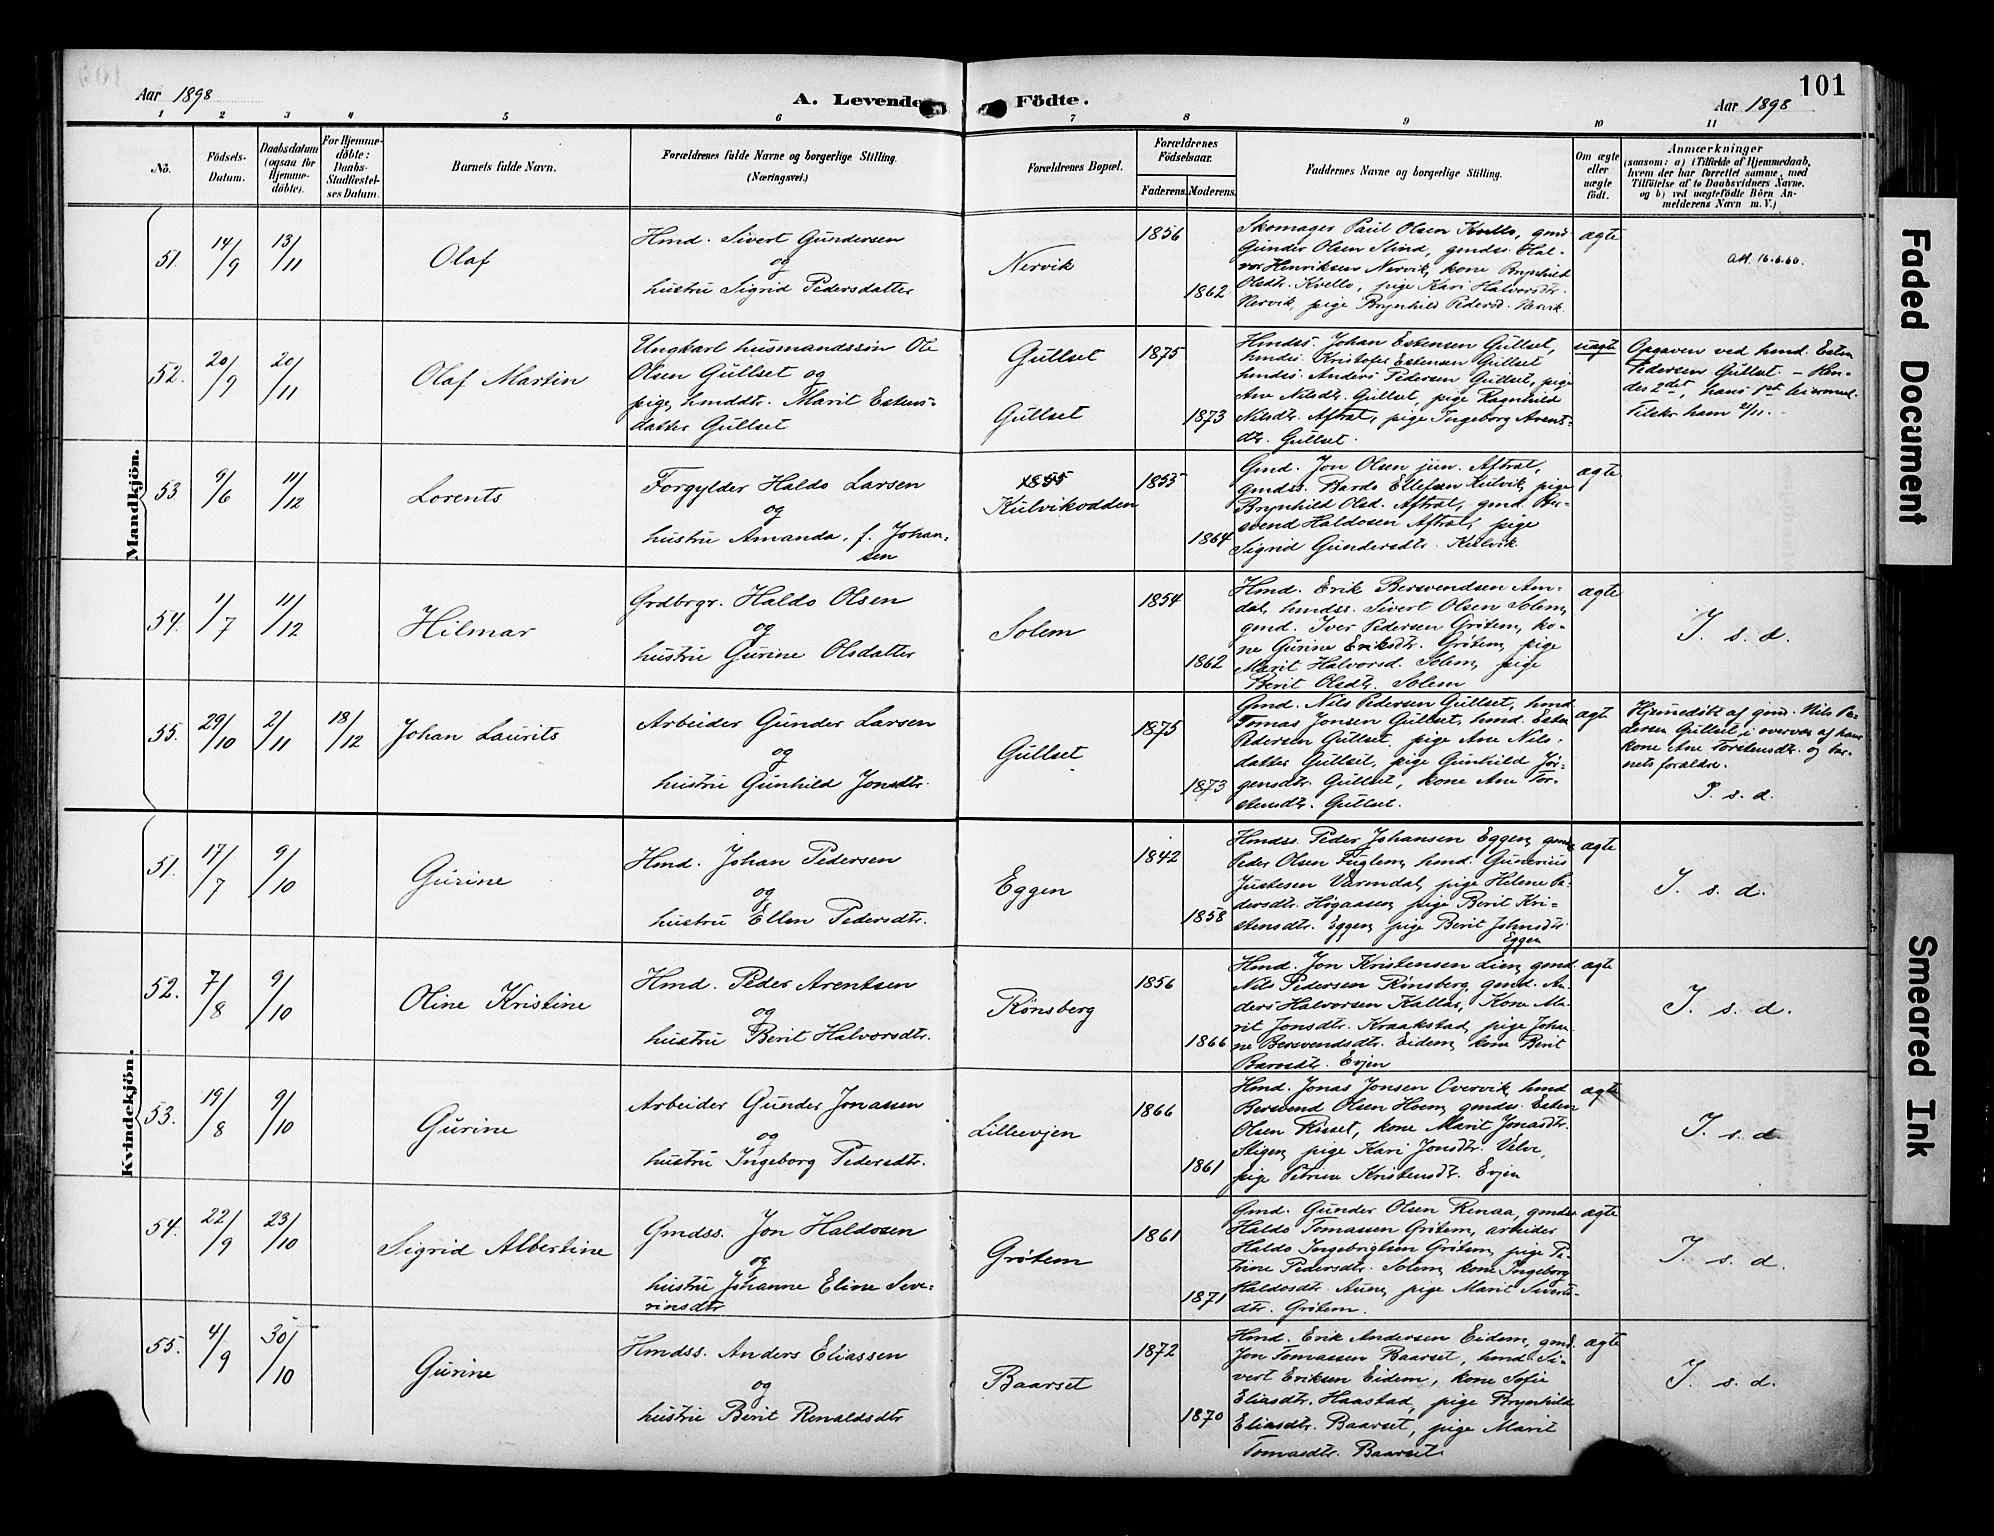 101
Aar 1898
A. Levende Födte.
Aar 1898
1 2 3 4 5 6 7 8 9 10 11
No.
Födsels-
Datum.
Daabsdatum
(ogsaa for
Hjemme-
döbte).
For Hjemme-
döbte:
Daabs-
Stadfæstel-
ses Datum.
Barnets fulde Navn.
Forældrenes fulde Navne og borgerlige Stilling.
(Næringsvei.)
Forældrenes Bopæl.
Forældrenes
Födselsaar.
Faderens.
Moderens.
Faddernes Navne og borgerlige Stilling.
Om ægte
eller
uægte
födt.
Anmærkninger
(saasom: a) i Tilfælde af Hjemmedaab,
hvem der har forrettet samme, med
Tilföielse af to Daabsvidners Navne,
og b) ved uægtefödte Börn An-
melderens Navn m. V.)
Mandkjön.
51.
14/9
13/11
Olaf
Hmd. Sivert Gundersen
og
hustru Sigrid Pedersdatter
Nervik
1856
1862
Skomager Paul Olsen Kvello, gmds
Gunder Olsen Slind, gmdss. Hal-
vor Henriksen Nervik, kone Brynhild
Olsdtr. Kvello, pige Kari Halvorsdtr.
Nervik, pige Brynhild Pedersd. Nervik.
ægte
att. 16.6.60.
52.
20/9
20/11
Olaf Martin
Ungkarl husmandssön Ole
Olsen Gullset og
pige, hmddtr. Marit Estens-
datter Gullset
Gullset
Gullset
1875
1873
Hmdss. Johan Estensen Gullset,
hmdss. Kristofer Estensen Gullset
hmdss. Anders Pedersen Gullset, pige
Ane Nilsdtr. Gullset, pige Ragnhild
Nilsdtr. Aftret, pige Ingeborg Arents-
dtr. Gullset.
uægte
Opgaven ved hmd. Esten
Pedersen Gullset. – Hen-
des 2det, hans 1st leiermaal.
Tilstr. ham 2/11.
53
9/6
11/12
Lorents
Forgylder Haldo Larsen
og
hustru Amanda, f. Johan-
sen
1855
Kulvikvodden
1855
1864
Gmd. Jon Olsen jun. Aftret,
gmdss. Bardo Ellefsen Kulvik, pige
Brynhild Olsd. Aftret, gmd. Ber-
svend Haldosen Aftret, pige
Sigrid Gundersdtr. Kulvik.
ægte
54.
1/7
11/12
Hilmar
Grdbrgr. Haldo Olsen
og
hustru Gurine Olsdatter
Solem
1854
1862
Hmd. Erik Bersvendsen Am-
dal, hmdss. Sivert Olsen Solem,
gmd. Iver Pedersen Grötem, ko-
ne Gurine Eriksdtr. Grötem, pige
Marit Halvorsd. Solem, pige
Berit Olsdtr. Solem
ægte
I. s. d.
55.
29/10
2/11
18/12
Johan Laurits
Arbeider Gunder Larsen
og
hustru Gunhild Jonsdtr.
Gullset
1875
1873
Gmd. Nils Pedersen Gullset, hmd
Tomas Jonsen Gullset, hmd. Esten
Pedersen Gullset, pige Ane Nils-
datter Gullset, pige Gunhild Jör-
gensdtr. Gullset, kone Ane Tor-
stensdtr. Gullset.
ægte
Hjemmedöbt af gmd. Nils Pe-
dersen Gullset, i overvær af hans
kone Ane Torstensdtr. og bar-
nets forældre.
I. s. d.
Kvindekjön.
51.
17/7
9/10
Gurine
Hmd. Johan Pedersen
og
hustru Ellen Pedersdtr.
Eggen
1842
1858
Hmdss. Peder Johansen Eggen, gmds
Peder Olsen Fuglem, hmd. Gunerius
Justesen Varmdal, pige Helene Pe-
dersdtr. Högaasen, pige Berit Kri-
stensdtr. Eggen, pige Berit Johnsdtr.
Eggen
ægte
I. s. d.
52.
7/8
9/10
Oline Kristine
Hmd. Peder Arentsen
og
hustru Berit Halvorsdtr.
Rönsberg
1856
1866
Hmd. Jon Kristensen Lien, gmd.
Nils Pedersen Rönsberg, gmd. An-
ders Halvorsen Kallar, Kone Ma-
rit Jonsdtr. Kraakstad, pige Johan
ne Bersvendsdtr. Eidem, kone Berit
Baardsdtr. Evjen
ægte
I. s. d.
53.
19/8
9/10
Gurine
Arbeider Gunder Jonassen
og
hustru Ingeborg Pedersdtr.
Lilleevjen
1866
1861
Hmd. Jonas Jonsen Overvik, hmd
Bersvend Olsen Hoem, gmdss. Esten
Olsen Risset, kone Marit Jonasdtr.
Stigen, pige Kari Jonsdtr. Velve,
pige Petrine Kristensdtr. Evjen
ægte
I. s. d.
54.
22/9
23/10
Sigrid Albertine
Gmdss. Jon Haldosen
og
hustru Johanne Eline Seve-
rinsdtr
Grötem
1861
1871
Gmd. Gunder Olsen Renaa, gmdss
Haldo Tomassen Grötem, arbeider
Haldo Ingebrigtsen Grötem, pige Pe-
trine Pedersdtr. Solem, kone Ingeborg
Haldosdtr. Aune, pige Marit Siverts-
dtr. Grötem.
ægte
I. s. d.
55.
4/9
30/10
Gurine
Hmdss. Anders Eliassen
og
hustru Berit Renaldsdtr
Baarset
1872
1870
Hmd. Erik Andersen Eidem, gmd.
Jon Tomassen Baarset, hmd. Si-
vert Eriksen Eidem, kone Sofie
Eliasdtr. Haastad, pige Brynhild
Eliasdtr. Baarset, pige Marit
Tomasdtr. Baarset.
ægte
I. s. d.
Faded Document
Smeared Ink